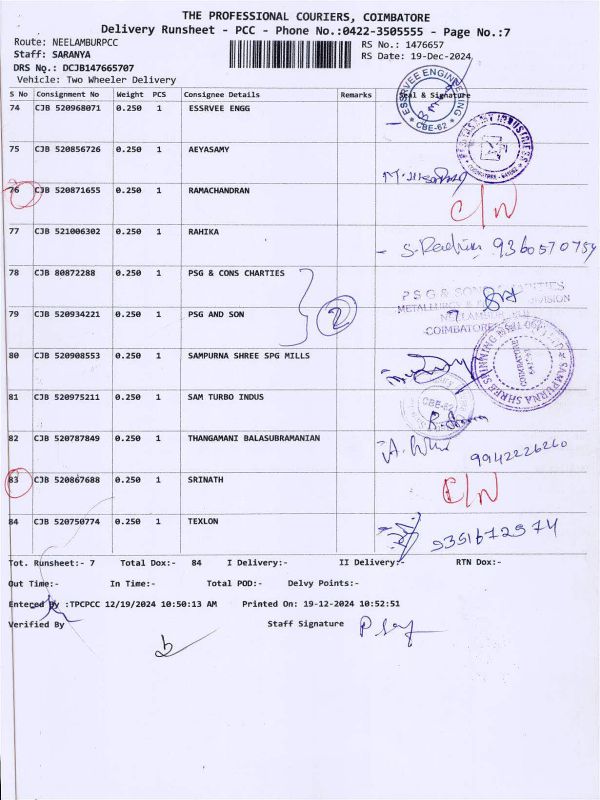 THE PROFESSIONAL COURIERS, COIMBATORE
Delivery Runsheet - PCC - Phone No.:0422-3505555 - Page No.:7
Route: NEELAMBURPCC RS No.: 1476657
Staff: SARANYA RS Date: 19-Dec-2024
DRS No.: DCJB147665707
Vehicle: Two Wheeler Delivery
S No Consignment No Weight PCS Consignee Details Remarks Seal & Signature
74 CJB 520968071 0.250 1 ESSRVEE ENGG
ESSRVEE ENGINEERING
CBE-62
75 CJB 520856726 0.250 1 AEYASAMY
76 CJB 520871655 0.250 1 RAMACHANDRAN C/N
77 CJB 521006302 0.250 1 RAHIKA 9360570754
78 CJB 80872288 0.250 1 PSG & CONS CHARTIES
2
79 CJB 520934221 0.250 1 PSG AND SON
COIMBATORE
80 CJB 520908553 0.250 1 SAMPURNA SHREE SPG MILLS
81 CJB 520975211 0.250 1 SAM TURBO INDUS
CBE-62
82 CJB 520787849 0.250 1 THANGAMANI BALASUBRAMANIAN
9942226260
83 CJB 520867688 0.250 1 SRINATH C/N
84 CJB 520750774 0.250 1 TEXLON 9351672974
Tot. Runsheet:- 7 Total Dox:- 84 I Delivery:- II Delivery:- RTN Dox:-
Out Time:- In Time:- Total POD:- Delvy Points:-
Entered By :TPCPCC 12/19/2024 10:50:13 AM Printed On: 19-12-2024 10:52:51
Verified By Staff Signature